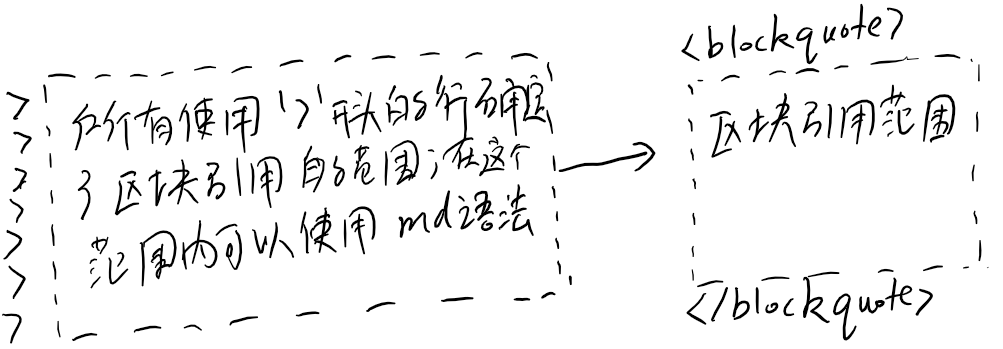 >
>
>
>
>
>
>
所有使用 '>' 开头的行确定
了区块引用的范围;在这个
范围内可以使用 md语法
<blockquote>
区块引用范围
</blockquote>